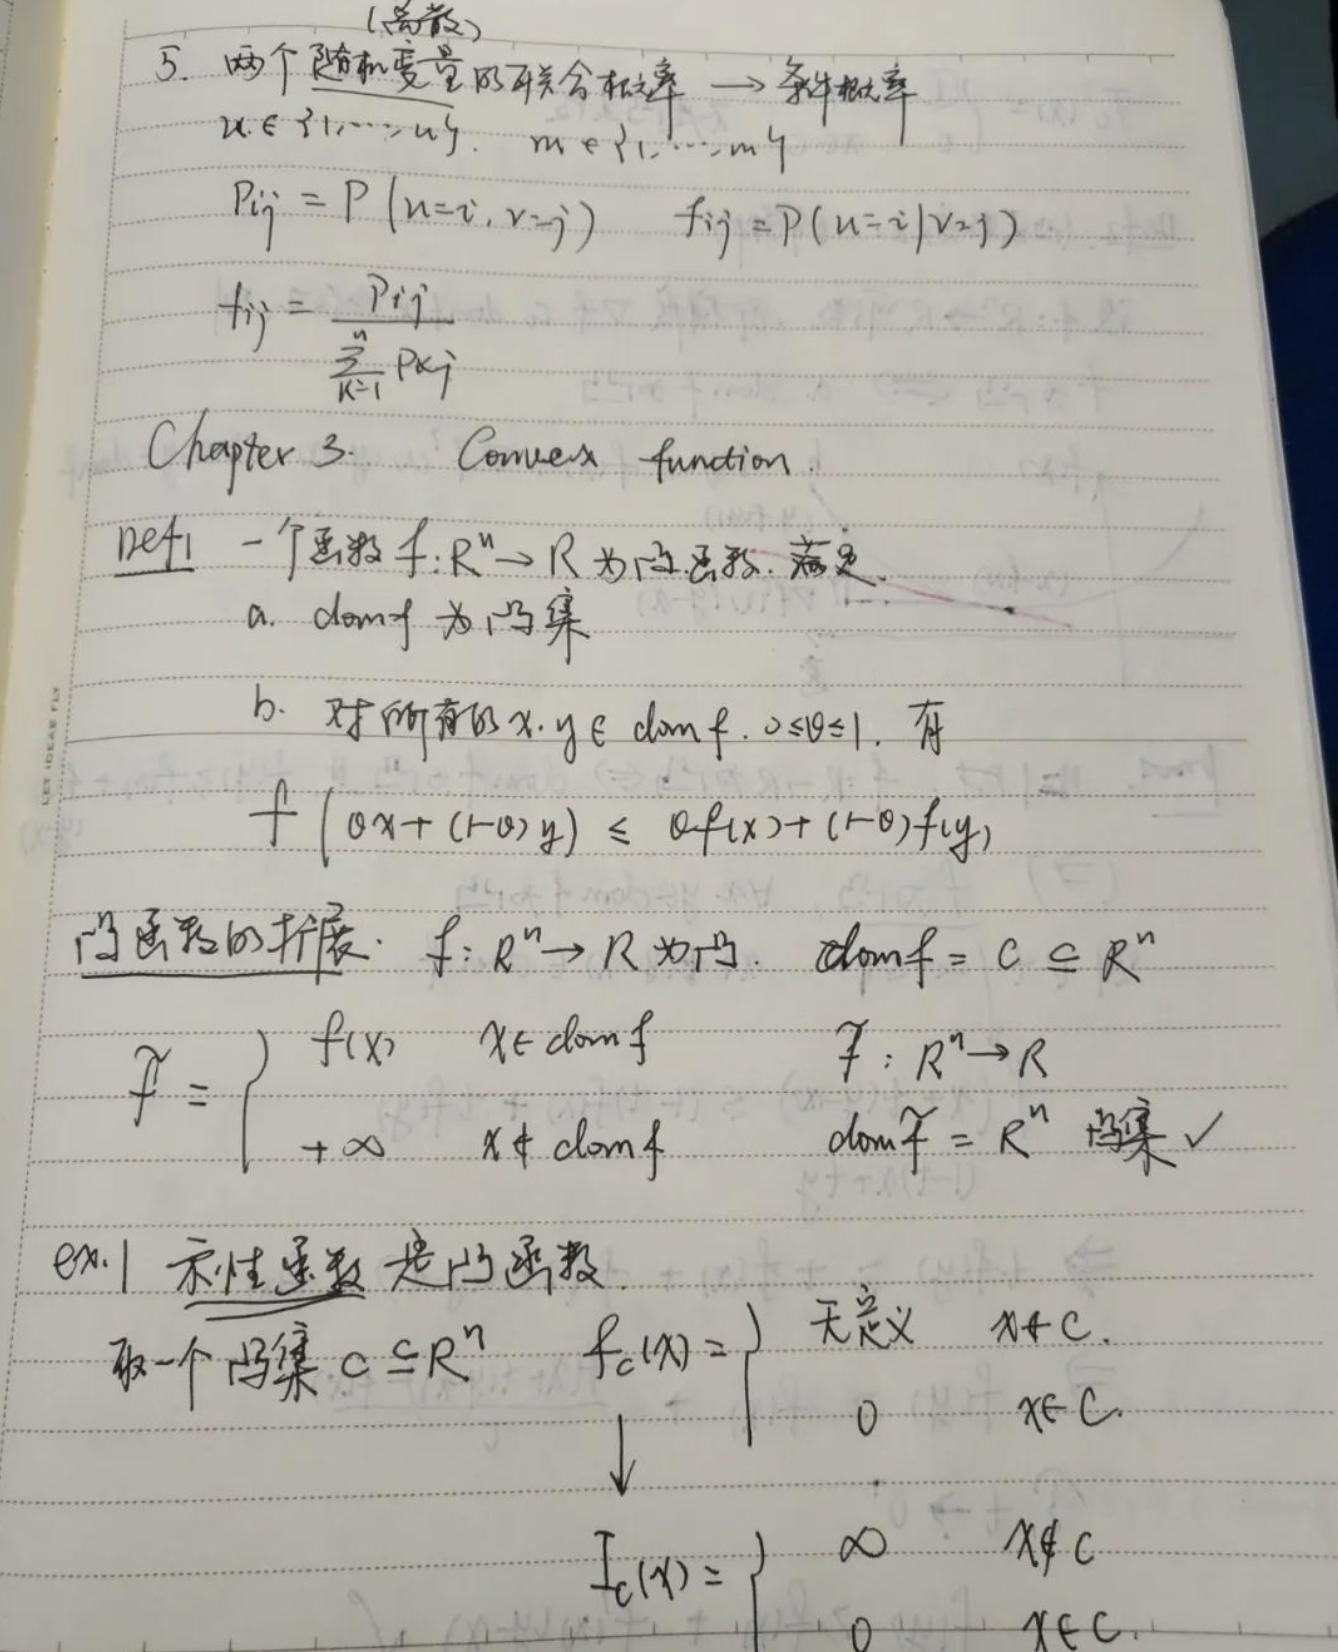 (离散)
5. 两个随机变量的联合概率 → 条件概率
u ∈ {1, ..., n}. m ∈ {1, ..., m}
Pij = P(u=i, v=j) fij = P(u=i|v=j)
fij = Pij / Σ_{k=1}^{n} Pkj
Chapter 3. Convex function.
Def1 一个函数 f: Rⁿ → R 为凸函数. 满足.
a. domf 为凸集
b. 对所有的 x. y ∈ dom f. 0≤θ≤1. 有
f(θx + (1-θ)y) ≤ θf(x) + (1-θ)f(y)
凸函数的扩展. f: Rⁿ → R 为凸. domf = C ⊆ Rⁿ
f̃ = { f(x) x ∈ dom f f̃ : Rⁿ → R
+∞ x ∉ dom f dom f̃ = Rⁿ 凸集 ✓
ex.1 示性函数 是凸函数.
取一个凸集 C ⊆ Rⁿ f_c(x) = { 无定义 x ∉ C.
0 x ∈ C.
↓
I_c(x) = { ∞ x ∉ C
0 x ∈ C.
LET IDEAS FLY